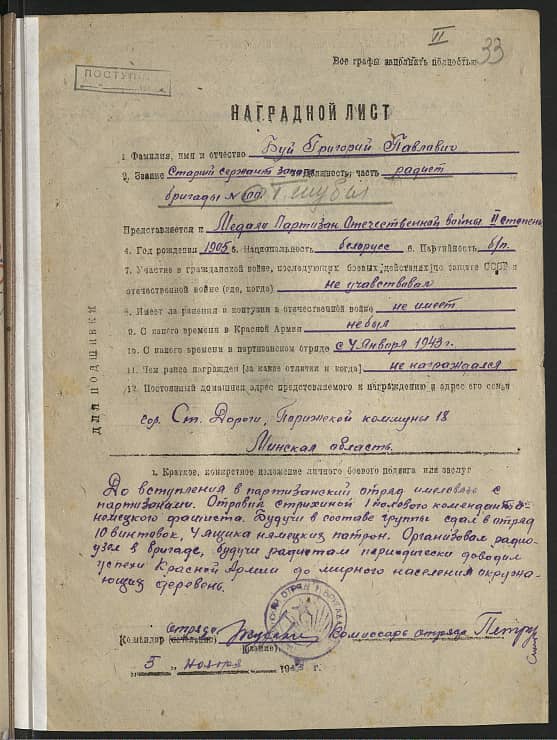 II
33
Все графы заполнять полностью
ПОСТУП
НАГРАДНОЙ ЛИСТ
1. Фамилия, имя и отчество Буй Григорий Павлович
2. Звание Старший сержант запаса 3. Должность, часть радист
бригады №
Представляется к Медали Партизан Отечественной войны II степени
4. Год рождения 1905 5. Национальность белорусс 6. Партийность б/п.
7. Участие в гражданской войне, последующих боевых действиях по защите СССР и
отечественной войне (где, когда) не учавствовал
8. Имеет ли ранения и контузии в отечественной войне не имеет
9. С какого времени в Красной Армии не был
10. С какого времени в партизанском отряде с 4 Января 1943 г.
11. Чем ранее награжден [за какие отличия и когда] не награждался
12. Постоянный домашний адрес представляемого к награждению и адрес его семьи
гор. Ст. Дороги, Парижской коммуны 18
Минская область.
ДЛЯ ПОДШИВКИ
1. Краткое, конкретное изложение личного боевого подвига или заслуг
До вступления в партизанский отряд имел связь с
партизанами. Отравил стрихиной 1 полового коменданта
немецкого фашиста. Будучи в составе группы сдал в отряд
10 винтовок, 4 ящика нямецких патрон. Организовал радио-
узел в бригаде, будучи радистам периодически доводил
успехи Красной Армии до мирного населения окружа-
ющих деревень.
Командир отряда Комиссарь отряда
5 " ноября 194 г.